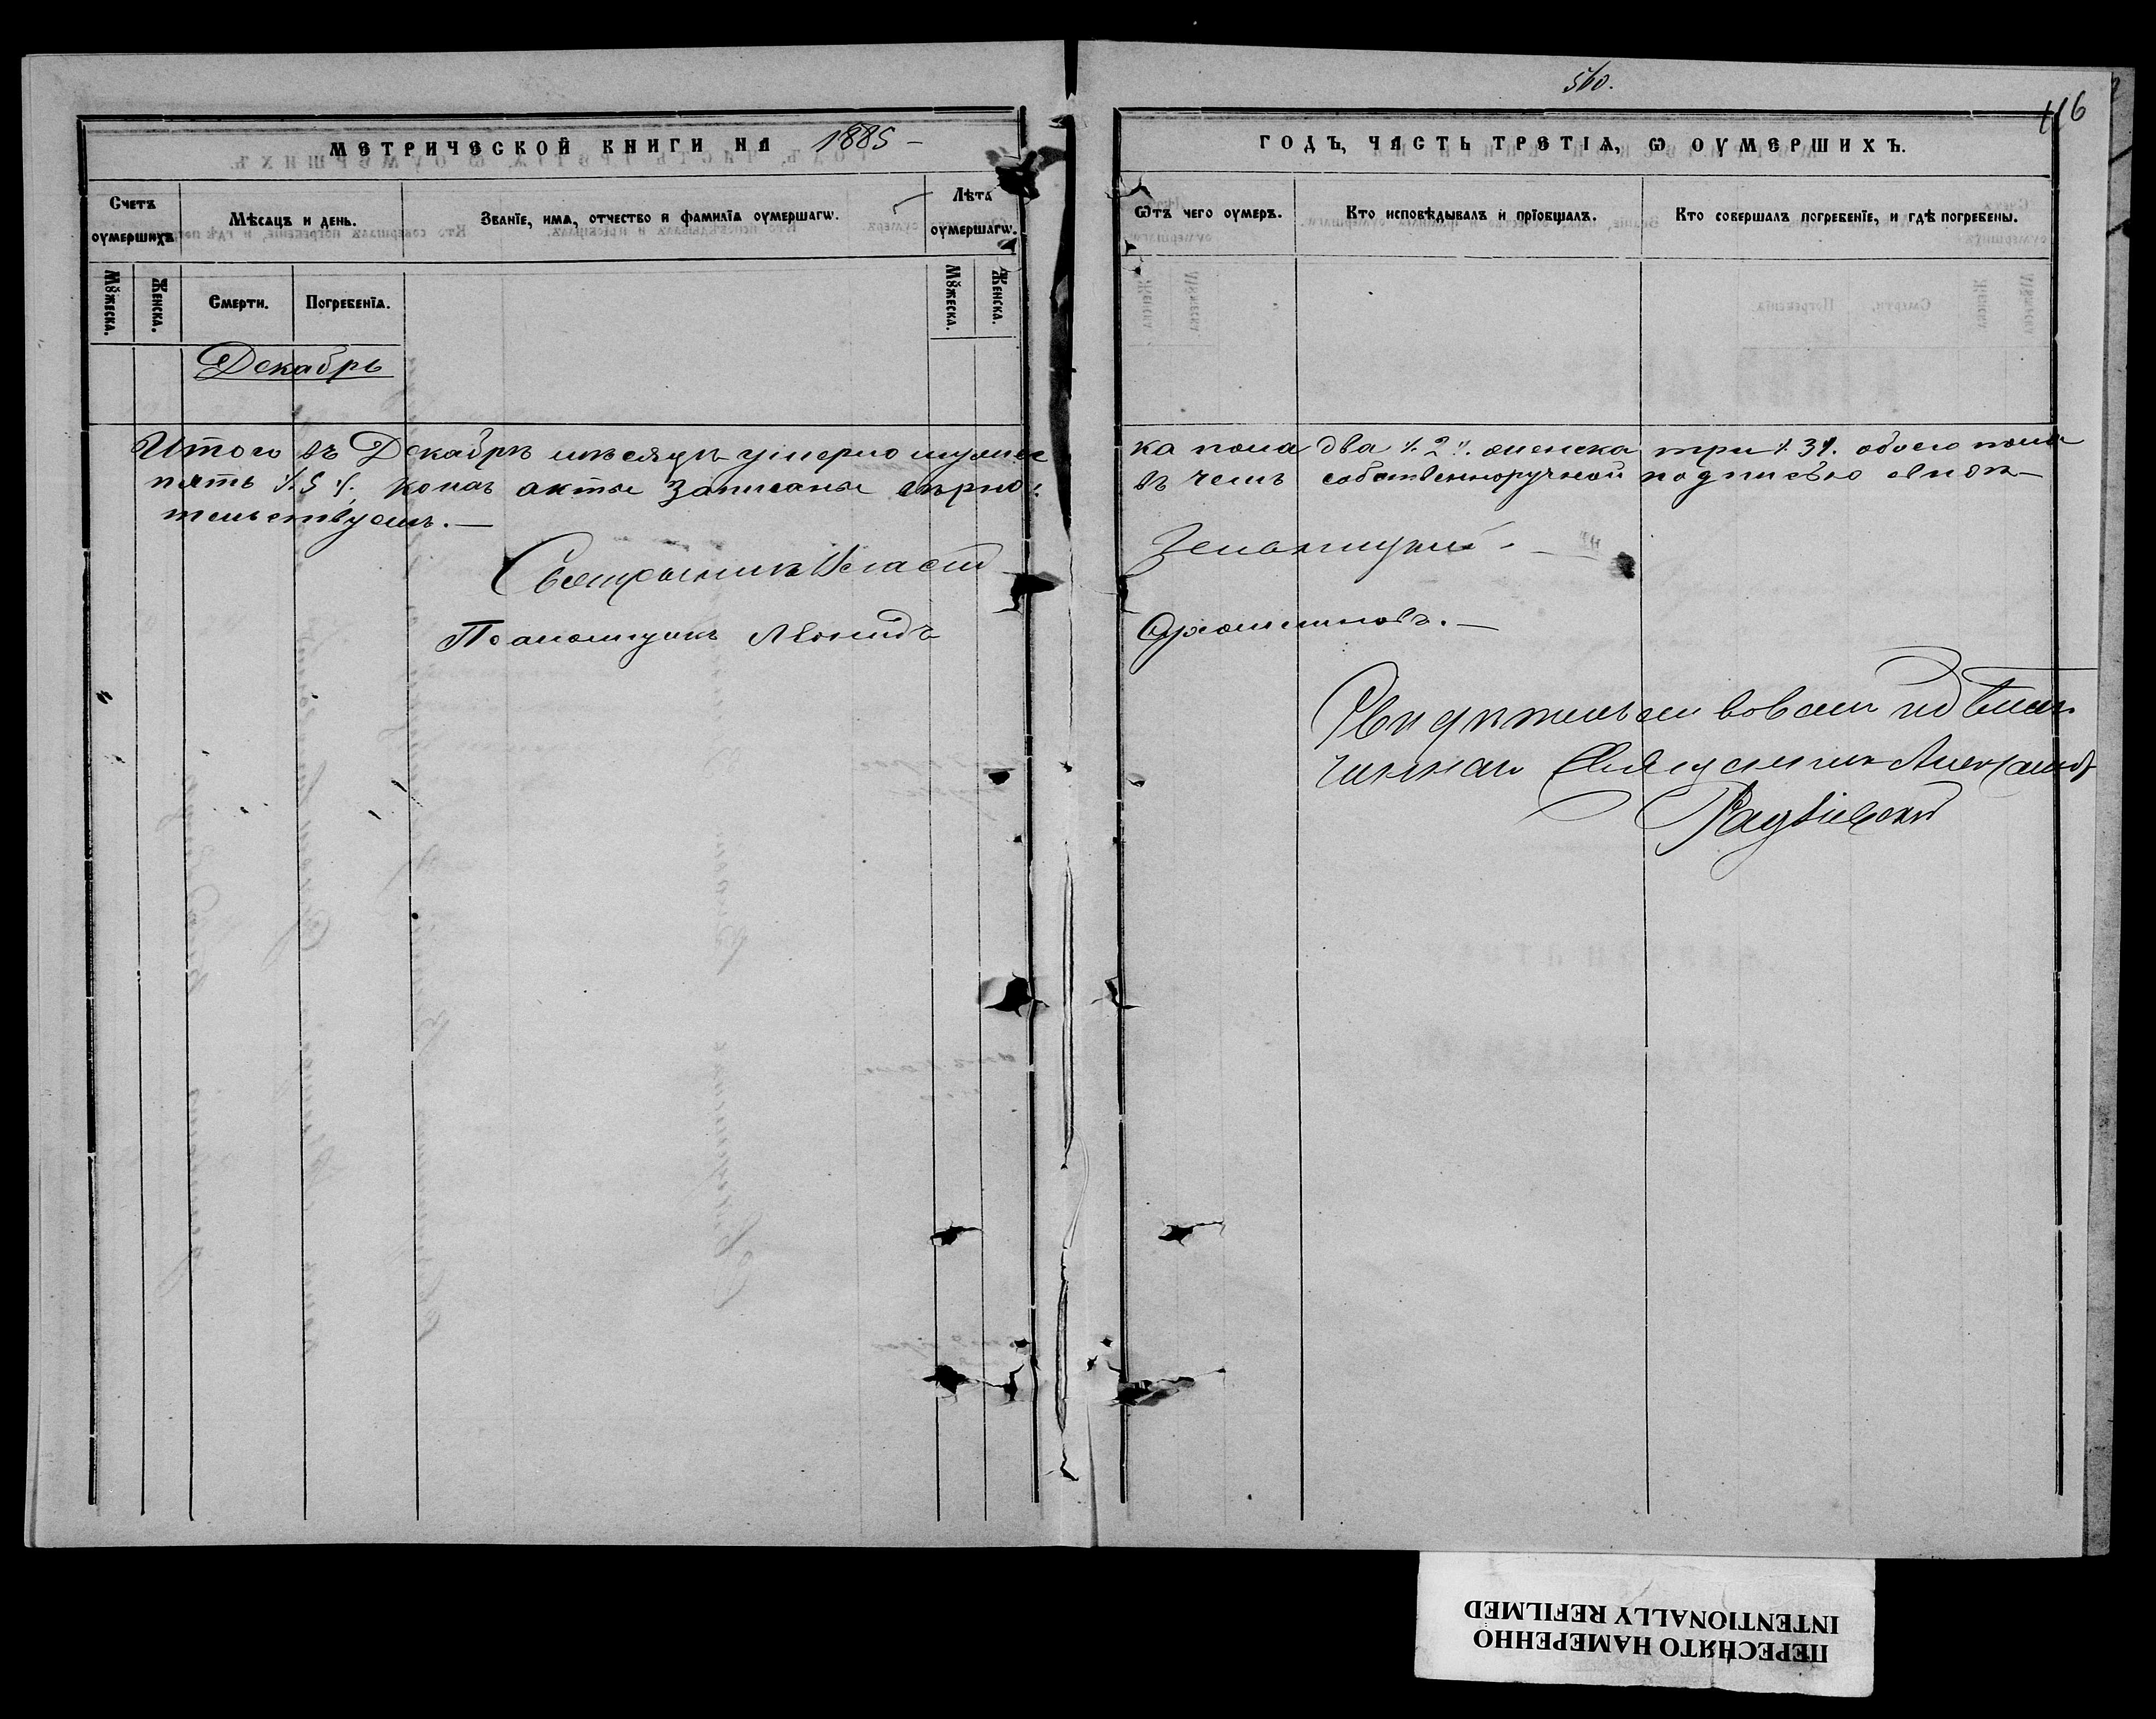 560.
116
МЕТРИЧЕСКОЙ КНИГИ НА 1885 –
ГОДЪ, ЧАСТЬ ТРЕТІѦ, Ѡ ОУМЕРШИХЪ.
Счетъ оумершихъ.
Мѣсѧцъ и день.
Званіе, имѧ, отчество и фамиліѧ оумершагѡ.
Лѣта оумершагѡ.
Ѿтъ чего оумеръ.
Кто исповѣдывалъ и пріобщалъ.
Кто совершалъ погребеніе, и гдѣ погребены.
Мꙋжеска.
Женска.
Смерти.
Погребеніѧ.
Мꙋжеска.
Женска.
Декабрь
Итого въ Декабрѣ мѣсяцѣ умерло мужес
ка пола два ⁒ 2 ⁒ женска три ⁒ 3 ⁒ обоего пола
пять ⁒ 5 ⁒ коихъ акты записаны вѣрно:
въ чемъ собственноручной подписью свидѣ
тельствуемъ. —
Священникъ
Псаломщикъ
Свидѣтельствовалъ
Священникъ
ПЕРЕСНЯТО НАМЕРЕННО
INTENTIONALLY REFILMED